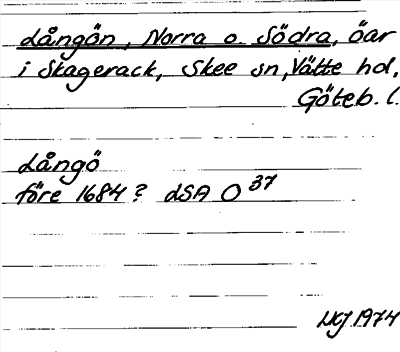 Långön, Norra o. Södra, öar
i Skagerack, Skee sn, Vätte hd,
Göteb. l.
Långö
före 1684? LSA O 37
1974